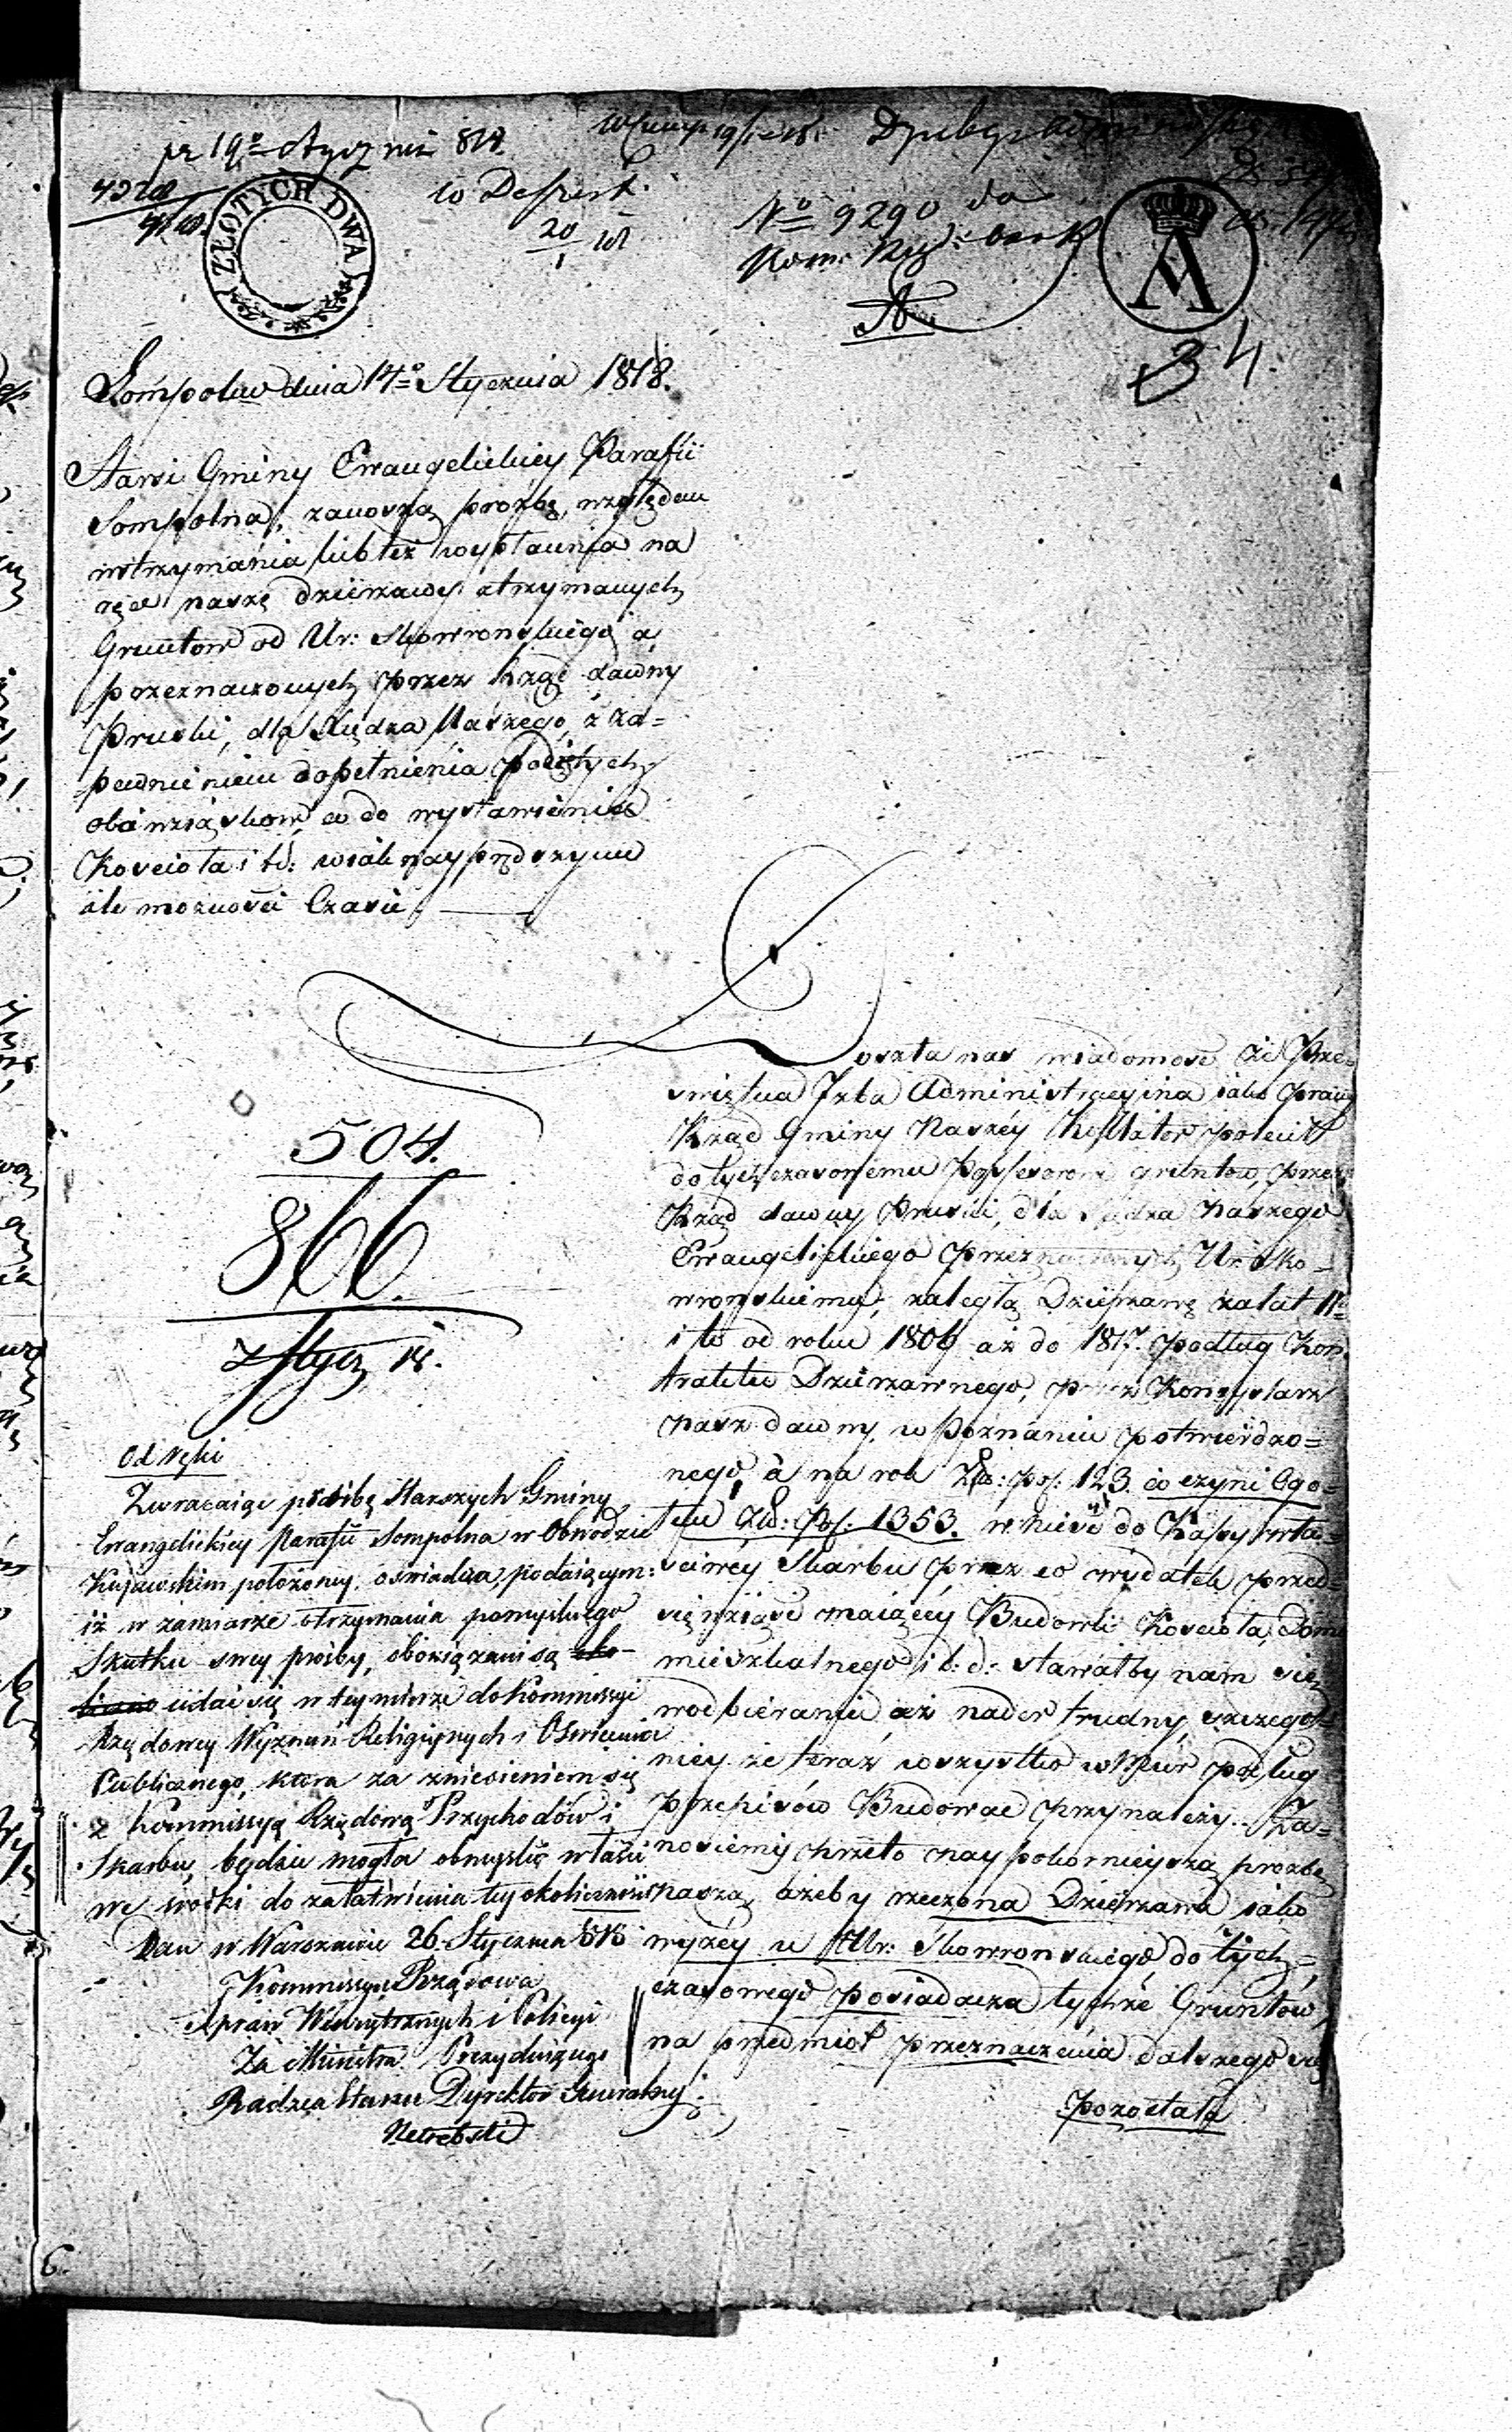 pr 19º Stycznia 818.
ZŁOTYCH DWA
w Depart.
20/1 18
Nº 9290 do
34.
Sompolno dnia 14º Stycznia 1818.
Starsi Gminy Ewangelickiey Parafii
Sompolna, zanoszą prozbę, względem
wstrzymania lub też wypłacenia na
ręce naszę dzierzawy z trzymanych
Gruntow od Ur: Skowronskiego a
przeznaczonych przez Rząd dawny
Pruski, dla Xiędza Naszego, z za=
pewnieniem dopełnienia
obowiązkow co do wystawienia
Koscioła i td: w iak nayprędszym
ile moznosci Czasie.
504.
866.
z Stycz 18.
Doszła nas wiadomosc że Prze=
swiętna Izba Administracyina iako prawy
Rząd Gminy Naszéy polecił
dotychczasowemu Possesorowi gruntow, przez
Rząd dawny Pruski, dla Xiędza naszego
Ewangelickiego przeznaczonych Ur: Sko=
wronskiemu, zaległą Dzierzawę za lat 11º
i to od roku 1806 aż do 1817. podług Kon
traktu Dzierzawnego, przez Konsystorz
nasz dawny w Poznaniu potwierdzo=
nego, à na rok Zło: Pol: 123. co czyni Ogo=
łem Zło: Pol: 1353. wnieść do Kassy wła=
sciwey Skarbu przez co wydatek przed=
sięwziąsć maiącey Budowli Koscioła, Domu
mieszkalnego i t: d: stawałby nam się
w odbieraniu aż nader trudny, szczegol=
niey że teraz wszystko w Mur podług
przepisów Budować przynależy. Za=
nosiemy przeto naypokornieyszą prozbę
naszą, ażeby rzeczona Dzierzawa, iako
wyżéy u Ur: Skowronskiego, dotych=
czasowego posiadacza tychże Gruntów,
na przedmiot przeznaczenia dalszego się
pozostała
Od ręki
Zwracaiąc prośbę Starszych Gminy
Ewangelickiey Parafii Sompolna w Obwodzie
Kujawskim położoney, oświadcza, podaiącym:
iż w zamiarze otrzymania pomyślnego
Skutku swey prośby, obowiązani są
udać się w tey mierze do Kommissyi
Rządowey Wyznań Religiynych i Oświecenia
Publicznego, która za zniesieniem się
z Kommissyą Rządową Przychodów i
Skarbu, będzie mogła obmyślić właści
we środki do załatwienia tey okoliczności
Dan w Warszawie 26. Stycznia 818
Kommissya Rządowa
Spraw Wewnętrznych i Policyi
Za Ministra Prezyduiącego
Radzca Stanu Dyrektor Generalny